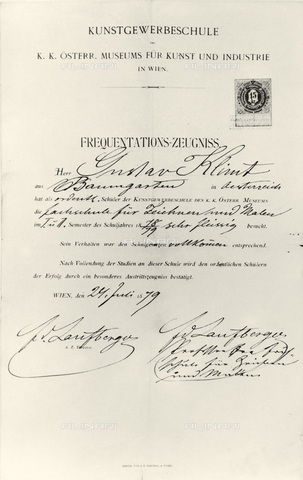 KUNSTGEWERBESCHULE
K. K. ÖSTERR. MUSEUMS FÜR KUNST UND INDUSTRIE
IN WIEN.
15
FREQUENTATIONS-ZEUGNISS.
Herr Gustav Klimt
aus Baumgarten in Oesterreich
hat als ordentl. Schüler der KUNSTGEWERBESCHULE DES K. K. ÖSTERR. MUSEUMS
die Fachschule für Zeichnen und Malen
im I. u. II. Semester des Schuljahres sehr fleissig besucht.
Sein Verhalten war den Schulgesetzen vollkommen entsprechend.
Nach Vollendung der Studien an dieser Schule wird den ordentlichen Schülern
der Erfolg durch ein besonderes Austrittszeugniss bestätigt.
WIEN, den 24 Juli 1879
F. Laufberger
F. Laufberger
Professor der Fach-
schule für Zeichnen
und Malen